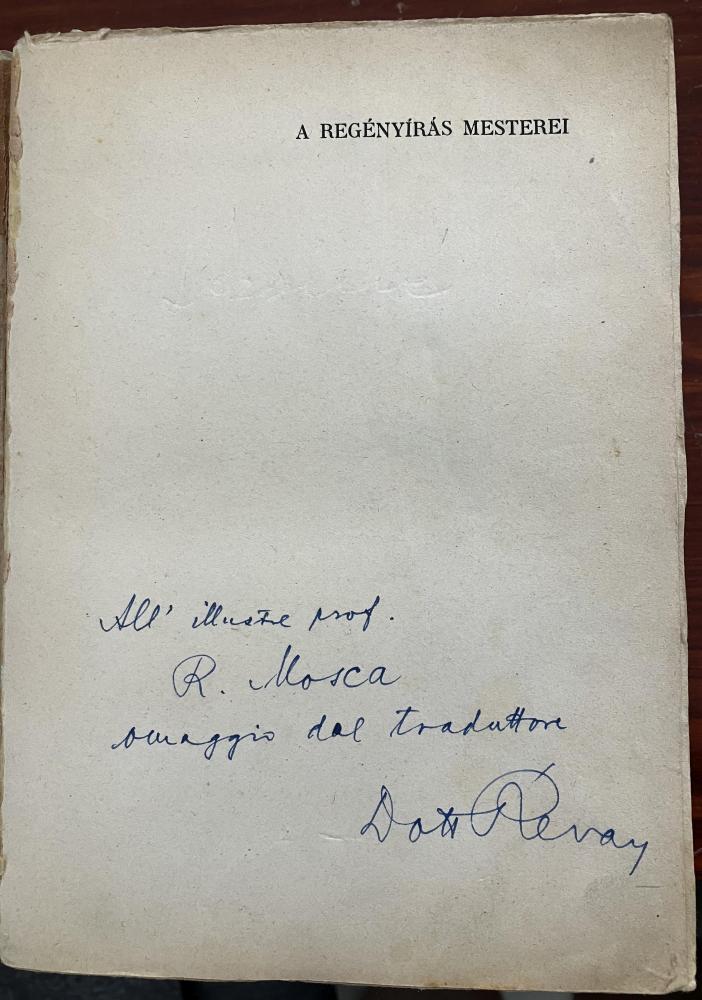 A REGÉNYÍRÁS MESTEREI
All' illustre prof.
R. Mosca
omaggio dal traduttore
Dott Révay